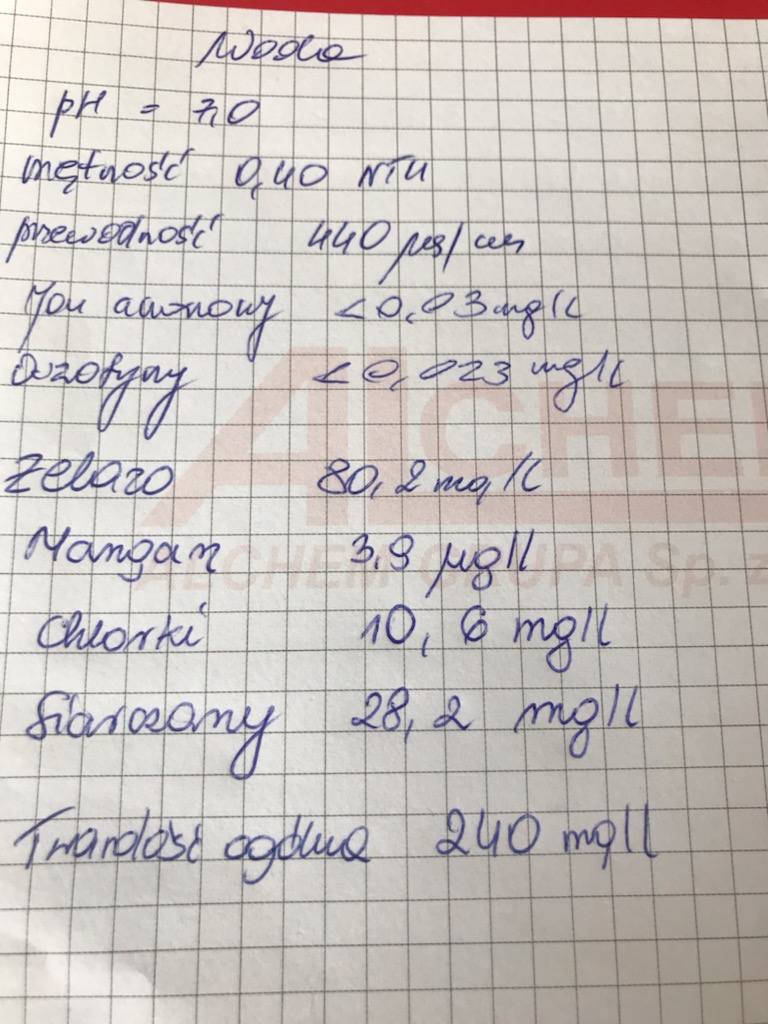 Woda
pH = 7,0
mętność 0,40 NTU
przewodność 440 µs/cm
Jon amonowy <0,03 mg/l
Azotyny <0,023 mg/l
ALCHEM
Żelazo 80,2 mg/l
Mangan 3,9 µg/l
ALCHEM GRUPA Sp. z
Chlorki 10,6 mg/l
Siarczany 28,2 mg/l
Twardość ogólna 240 mg/l